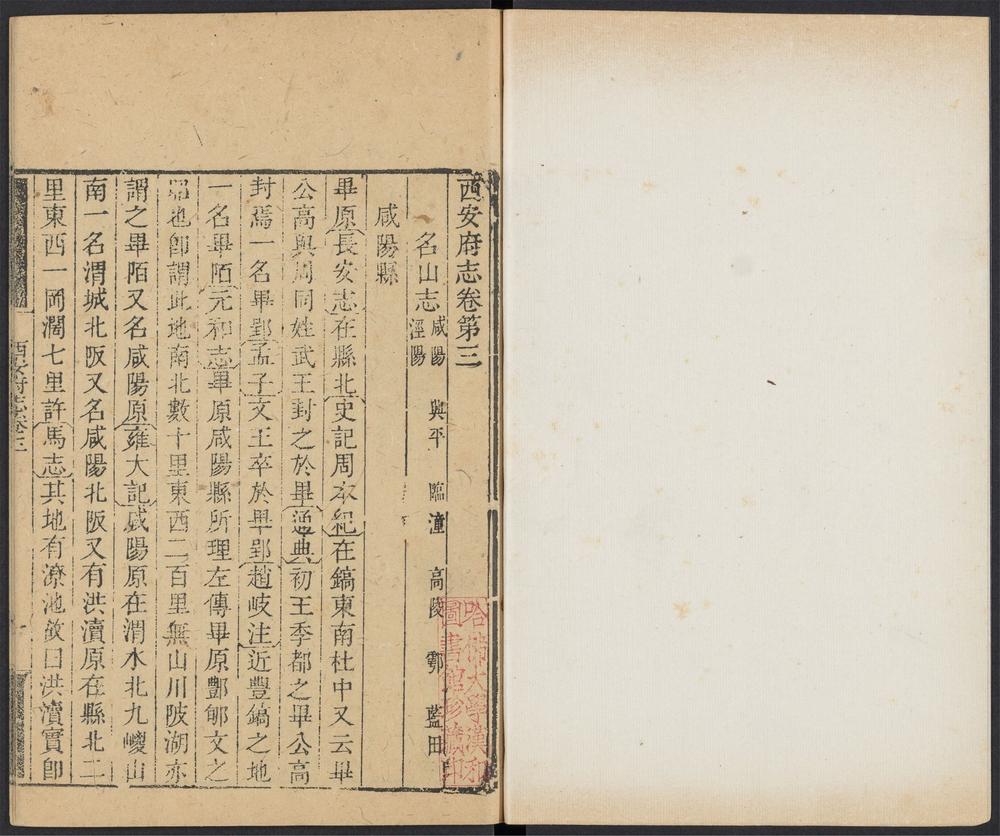 西安府志卷第三
名山志 咸陽 興平 臨潼 高陵 鄠 藍田
涇陽
咸陽縣
畢原長安志在縣北史記周本紀在鎬東南杜中又云畢
公高與周同姓武王封之於畢通典初王季都之畢公高
封焉一名畢郢孟子文王卒於畢郢趙岐注近豐鎬之地
一名畢陌元和志畢原咸陽縣所理左傳畢原酆郇文之
昭也卽謂此地南北數十里東西二百里無山川陂湖亦
謂之畢陌又名咸陽原雍大記咸陽原在渭水北九嵕山
南一名渭城北阪又名咸陽北阪又有洪瀆原在縣北二
里東西一岡濶七里許馬志其地有潦池故曰洪瀆實卽
西安府志卷三
一
哈佛大學漢和
圖書館珍藏印